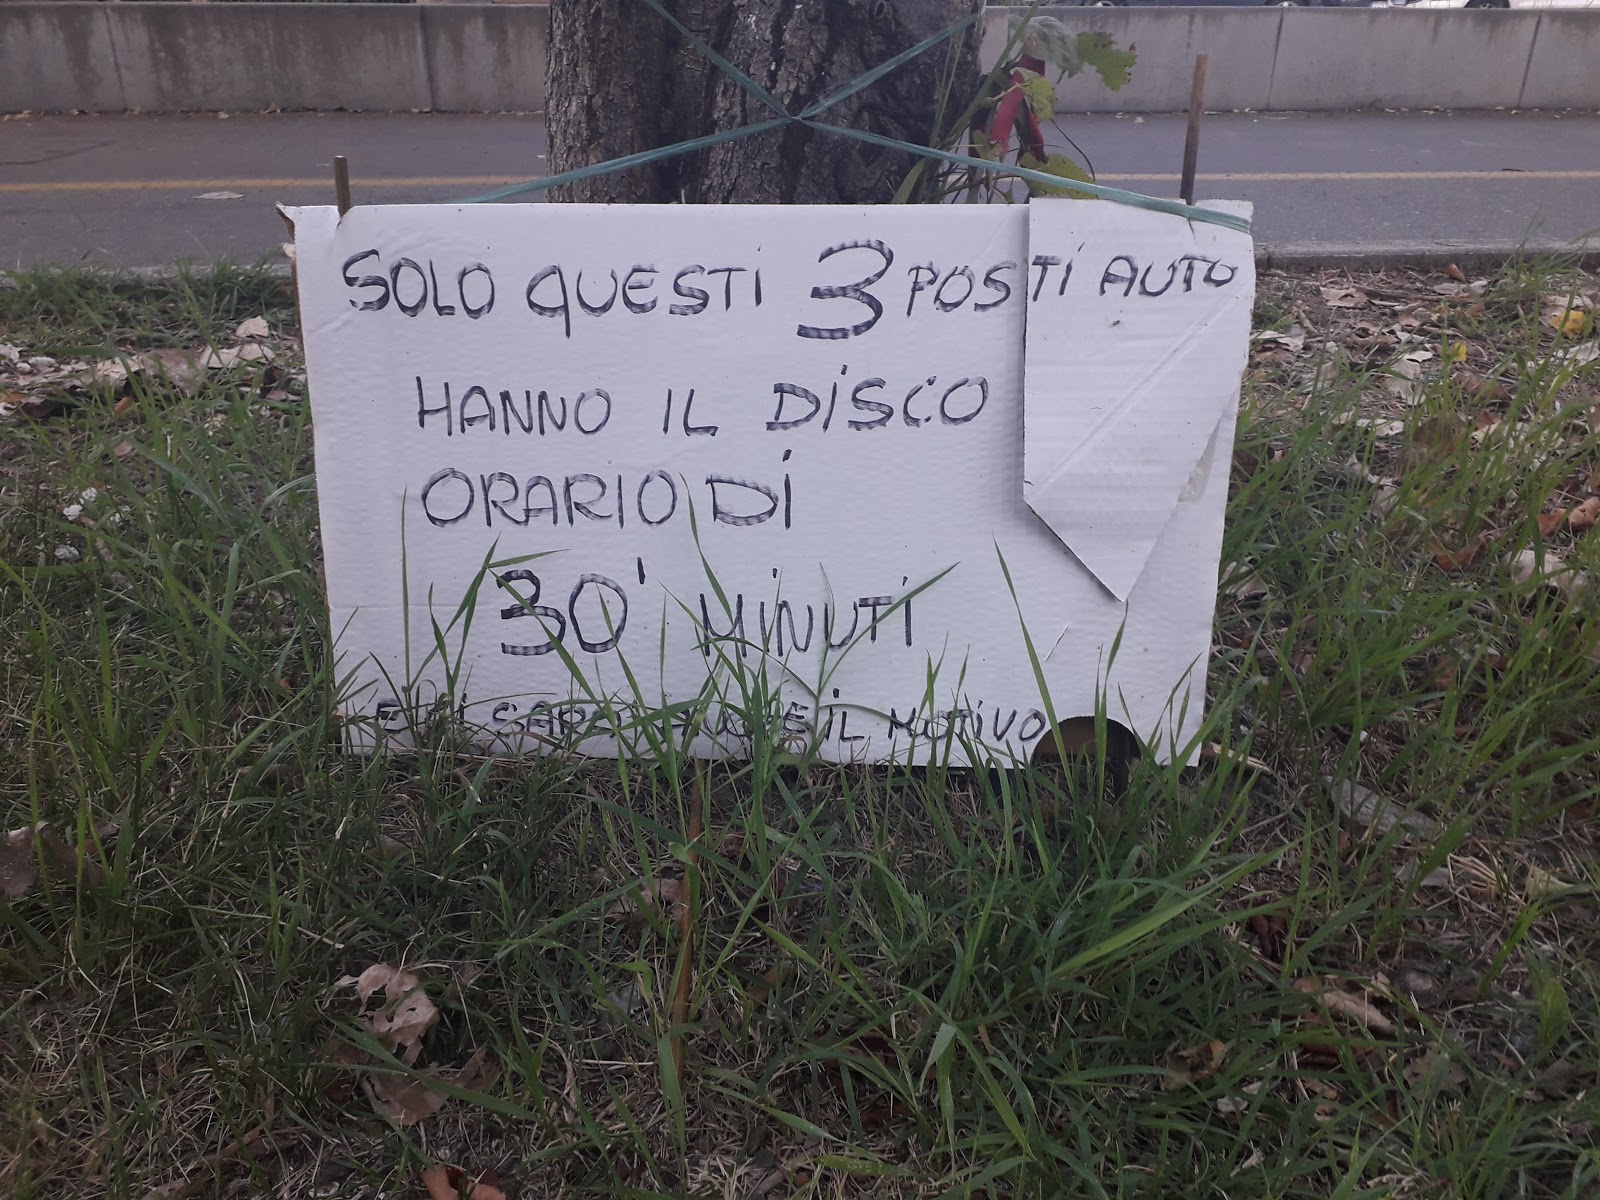 SOLO QUESTI 3 POSTI AUTO
HANNO IL DISCO
ORARIO DI
30' MINUTI
E IL MOTIVO